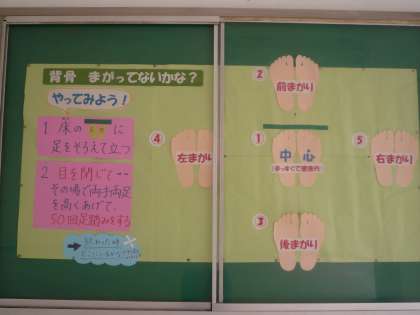 背骨 まがってないかな？
やってみよう！
1 床の
に
足をそろえて立つ
2 目を閉じて・・
その場で両手両足
を高くあげて、
50回足踏みをする
終わった時
2
前まがり
4
左まがり
1
中心
まっすぐで
5
右まがり
3
後まがり